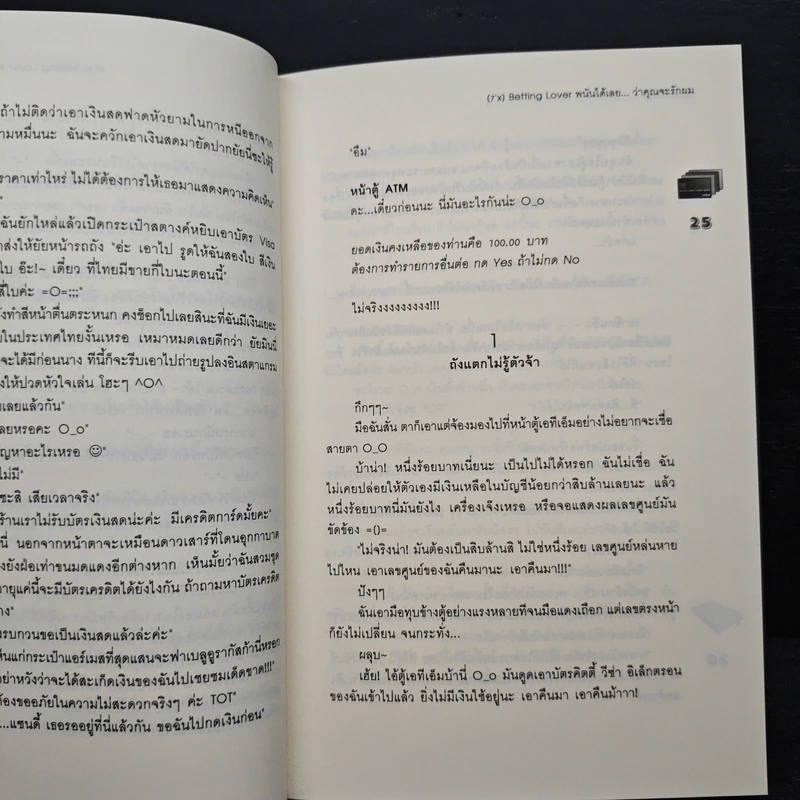 ถ้าไม่ติดว่าเอาเงินสดฟาดหัวยามในการหนีออกจาก
ามหมื่นนะ ฉันจะควักเอาเงินสดมายัดปากยัยนี่ซะให้รู้
ราคาเท่าไหร่ ไม่ได้ต้องการให้เธอมาแสดงความคิดเห็น"
ฉันยักไหล่แล้วเปิดกระเป๋าสตางค์หยิบเอาบัตร Visa
าส่งให้ยัยหน้ารถถัง "อ่ะ เอาไป รูดให้ฉันสองใบ สีเงิน
ใบ อ๊ะ!~ เดี๋ยว ที่ไทยมีขายกี่ใบนะตอนนี้"
สี่ใบค่ะ =O=;;;"
ังทำสีหน้าตื่นตระหนก คงช็อกไปเลยสินะที่ฉันมีเงินเยอะ
ยในประเทศไทยงั้นเหรอ เหมาหมดเลยดีกว่า ยัยมินนี่
จะได้มีก่อนนาง ทีนี้ก็จะรีบเอาไปถ่ายรูปลงอินสตาแกรม
งให้ปวดหัวใจเล่น โฮะๆ ^O^
เลยแล้วกัน"
ลยหรอคะ O_o"
ญหาอะไรเหรอ ☺"
ไม่มี"
ซะสิ เสียเวลาจริง"
ร้านเราไม่รับบัตรเงินสดน่ะค่ะ มีเครดิตการ์ดมั้ยคะ"
นี่ นอกจากหน้าตาจะเหมือนดาวเสาร์ที่โดนอุกกาบาต
งยังฝ่อเท่าขนมแดงอีกต่างหาก เห็นมั้ยว่าฉันสวมชุด
อายุแค่นี้จะมีบัตรเครดิตได้ยังไงกัน ถ้าถามหาบัตรเครดิต
าง"
รบกวนขอเป็นเงินสดแล้วล่ะค่ะ"
ห็นแก่กระเป๋าแอร์เมสที่สุดแสนจะฟาเบลูอูรากัสก้านี่หรอก
อย่าหวังว่าจะได้สะเก็ดเงินของฉันไปเชยชมเด็ดขาด!!!"
ต้องขออภัยในความไม่สะดวกจริงๆ ค่ะ TOT"
...แซนดี้ เธอรออยู่ที่นี่แล้วกัน ขอฉันไปกดเงินก่อน"
(7'x) Betting Lover พนันได้เลย... ว่าคุณจะรักผม
25
"อืม"
หน้าตู้ ATM
ดะ...เดี๋ยวก่อนนะ นี่มันอะไรกันน่ะ O_o
ยอดเงินคงเหลือของท่านคือ 100.00 บาท
ต้องการทำรายการอื่นต่อ กด Yes ถ้าไม่กด No
ไม่จริงงงงงงงงง!!!
1
ถังแตกไม่รู้ตัวจ้า
กึกๆๆ~
มือฉันสั่น ตาก็เอาแต่จ้องมองไปที่หน้าตู้เอทีเอ็มอย่างไม่อยากจะเชื่อ
สายตา O_O
บ้าน่า! หนึ่งร้อยบาทเนี่ยนะ เป็นไปไม่ได้หรอก ฉันไม่เชื่อ ฉัน
ไม่เคยปล่อยให้ตัวเองมีเงินเหลือในบัญชีน้อยกว่าสิบล้านเลยนะ แล้ว
หนึ่งร้อยบาทนี่มันยังไง เครื่องเจ๊งเหรอ หรือจอแสดงผลเลขศูนย์มัน
ขัดข้อง =()=
"ไม่จริงน่า! มันต้องเป็นสิบล้านสิ ไม่ใช่หนึ่งร้อย เลขศูนย์หล่นหาย
ไปไหน เอาเลขศูนย์ของฉันคืนมานะ เอาคืนมา!!!"
ปังๆๆ
ฉันเอามือทุบข้างตู้อย่างแรงหลายทีจนมือแดงเถือก แต่เลขตรงหน้า
ก็ยังไม่เปลี่ยน จนกระทั่ง...
ผลุบ~
เฮ้ย! ไอ้ตู้เอทีเอ็มบ้านี่ O_o มันดูดเอาบัตรคิตตี้ วีซ่า อิเล็กตรอน
ของฉันเข้าไปแล้ว ยิ่งไม่มีเงินใช้อยู่นะ เอาคืนมา เอาคืนม้าาา!